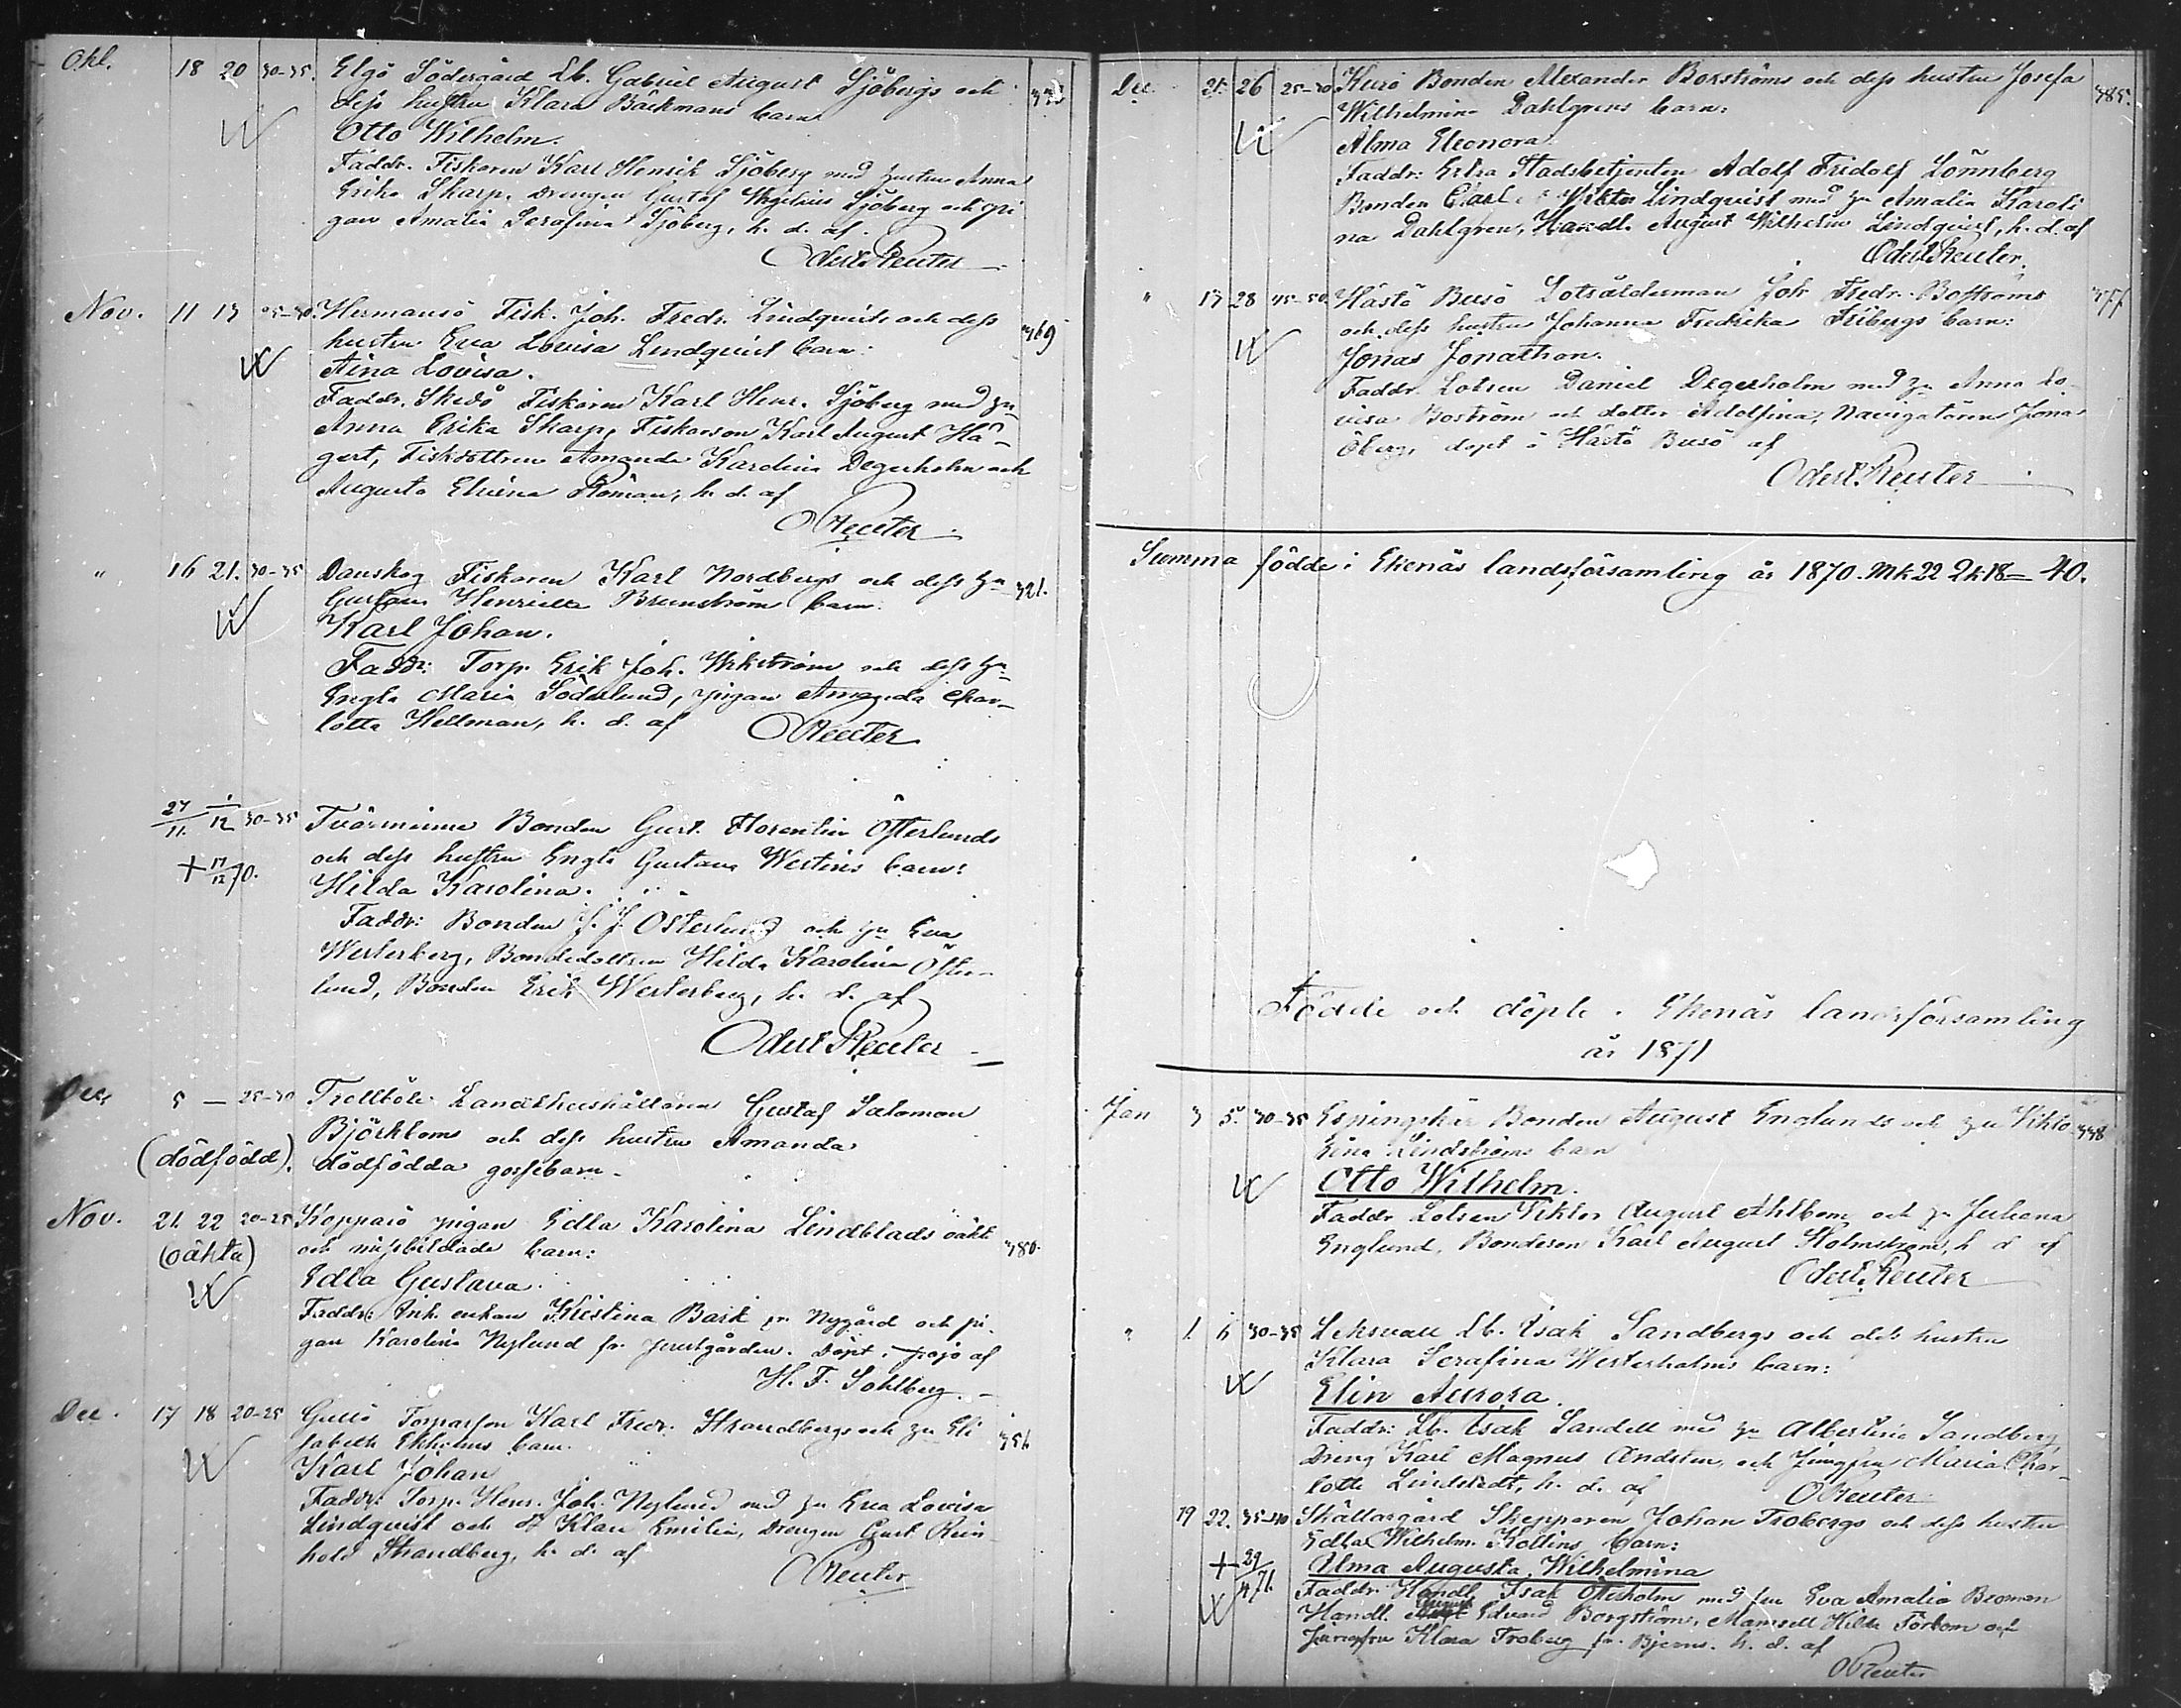 Okt. 18 20 30-35. Elgö Södergård Lb. Gabriel August Sjöbergs och
dess hustru Klara Bäckmans barn
Otto Wilhelm.
Faddr. Fiskaren Karl Henrik Sjöberg med hustru Anna
Erika Skarp, Drengen Gustaf Sjöberg och pi
gan Amalia Serafina Sjöberg, h. d. af.
Odert Reuter
Nov. 11 13 25-30. Hermansö Fisk. Joh. Fredr. Lindquists och dess 369
hustru Eva Lovisa Lindquist barn:
Aina Lovisa.
Faddr. Skedö Fiskaren Karl Henr. Sjöberg med hu
Anna Erika Skarp, Fiskarson Karl August Hä-
gert, Fiskdottren Amanda Karolina Degerholm och
Augusta Elvina Roman, h. d. af
OReuter
" 16 21. 30-35 Danskog Fiskaren Karl Nordbergs och dess hu 321.
Gustava Henrietta Brunström barn:
Karl Johan.
Faddr: Torp. Erik Joh. Wikström och dess hu
Engla Maria Söderlund, pigan Amanda Char-
lotta Hellman, h. d. af OReuter
27/11. 1/12 30-35 Tvärminne Bonden Gust. Florentin Österlunds
och dess hustru Engla Gustava Westins barn:
+ 17/12 70. Hilda Karolina.
Faddr: Bonden J. J. Österlund och hu Eva
Westerberg, Bondedottren Hilda Karolina Öster-
lund, Bonden Erik Westerberg, h. d. af
Odert Reuter
Dec. 5 — 25-30 Trollböle Landthushållaren Gustaf Salomon
Björkboms och dess hustru Amanda
(dödfödd). dödfödda gossebarn.
Nov. 21. 22 20-25 Koppasö pigan Edla Karolina Lindblads oäkt 380.
(oäkta) och missbildade barn:
Edla Gustava.
Faddr: Ink. enkan Kristina Bask fr. Nygård och pi-
gan Karolina Nylund fr. Döpt i Pojo af
H. F. Sohlberg.
Dec. 17 18 20-25 Gullö Torparson Karl Fredr. Strandbergs och hu Eli 356
sabeth Ekholms barn.
Karl Johan
Faddr: Torp. Henr. Joh. Nylund med hu Eva Lovisa
Lindquist och Klara Emilia, Drengen Gust. Rein-
hold Strandberg, h. d. af
OReuter
Dec. 25. 26 25-30 Bonden Alexander Boxströms och dess hustru Josefa 385.
Wilhelmina Dahlgrens barn:
Alma Eleonora.
Faddr: Extra Stadsbetjenten Adolf Fridolf Lönnberg
Bonden Carl Viktor Lindquist med hu Amalia Karoli
na Dahlgren, Handl. August Wilhelm Lindquist, h. d. af
Odert Reuter.
" 13 28 45-50. Hästö Busö Lotsålderman Joh Fredr. Boströms 377
och dess hustru Johanna Fredrika Fribergs barn:
Jonas Jonathan.
Faddr. Lotsen Daniel Degerholm med hu Anna Lo-
visa Boström och dotter Adolfina, Navigatören Jonas
Öberg, döpt i Hästö Busö af
Odert. Reuter
Summa födde i Ekenäs landsförsamling år 1870. Mk 22 Qk 18 = 40.
Födde och döpte i Ekenäs landsförsamling
år 1871
Jan 3 5. 30-35 Espingskär Bonden August Englunds och hu Vikto 338
rina Lindströms barn
Otto Wilhelm.
Faddr Lotsen Viktor August Ahlbom och hu Juliana
Englund, Bondeson Karl August Holmström, h d af
Odert. Reuter
" 1. 6 30-35 Leksvall Lb. Isak Sandbergs och dess hustru
Klara Serafina Westerholms barn:
Elin Aurora.
Faddr: Lb. Isak Sandell med hu Albertina Sandberg
Dreng Karl Magnus Andsten, och Jungfru Maria Char-
lotta Lindstedt, h. d. af OReuter
19 22. 35-40 Skällargård Skepparen Johan Frobergs och dess hustru
Edla Wilhelm. Kollins barn:
+ 29/4 71. Alma Augusta Wilhelmina
Faddr. Handl. Isak Öfverholm med fru Eva Amalia Broman
Handl. August Edvard Borgström, Mamsell Hilda Törbom och
Jungfru Klara Froberg fr. Bjerno. h. d. af
OReuter